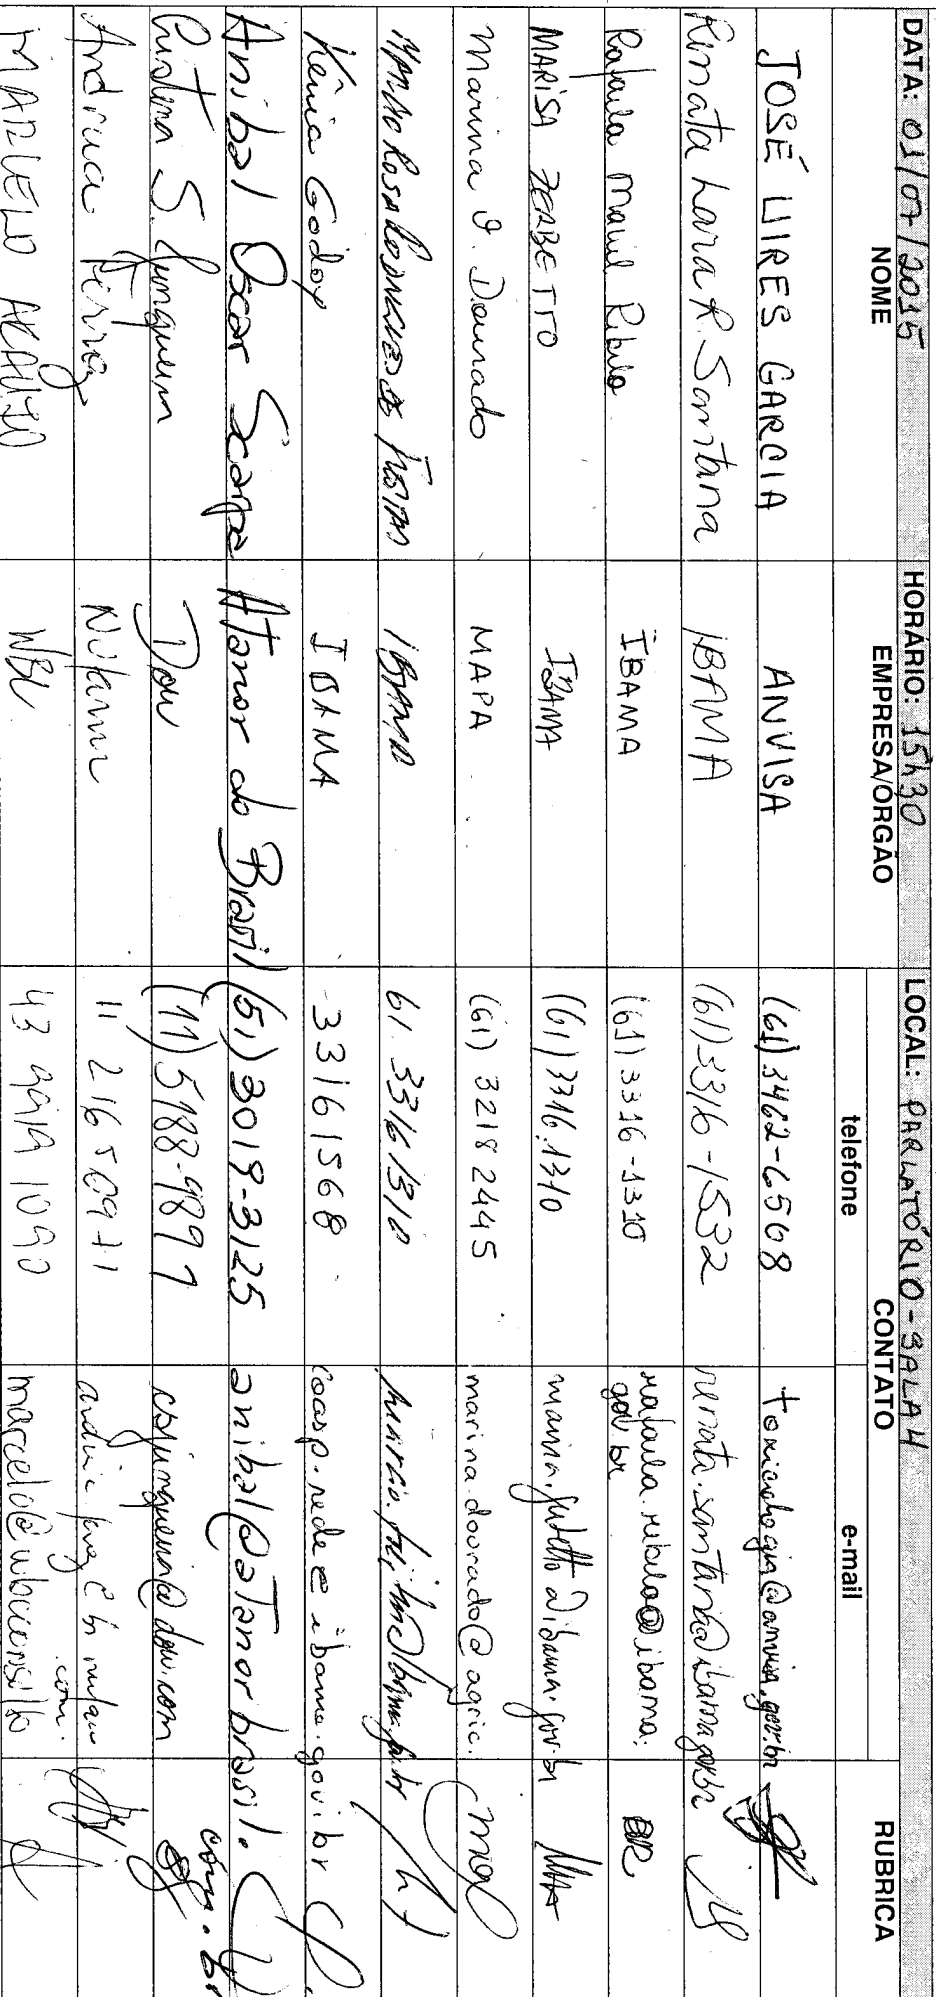 DATA: 01/07/2015 HORÁRIO: 15h30 LOCAL: PARLATÓRIO - SALA 4
NOME EMPRESA/ÓRGÃO CONTATO RUBRICA
telefone e-mail
JOSÉ UIRES GARCIA ANVISA (61) 3462-6508 toxicologia@anvisa.gov.br
Renata Lara R. Santana IBAMA (61) 3316-1532 renata.santana@ibama.gov.br
Rafaela Maciel Rebelo IBAMA (61) 3316-1310 rafaela.rebelo@ibama.
gov.br
MARISA ZERBETTO IBAMA (61) 3316.1310 marisa.zerbetto@ibama.gov.br
Marina O. Dourado MAPA (61) 3218 2445 marina.dourado@agric.
Freitas IBAMA 61. 3316 1310
Kênia Godoy IBAMA 33161568 coasp.rede@ibama.gov.br
Anibal Oscar Scarpa Atanor do Brasil (51) 3019-3125 anibal@atanorbrasil.
com.br
Cristina S. Junqueira Dow (11) 5188-9897 csjunqueira@dow.com
Andreia Ferraz Nufarm 11 21650971
.com.
MARCELO ACAUÃ 43 1090